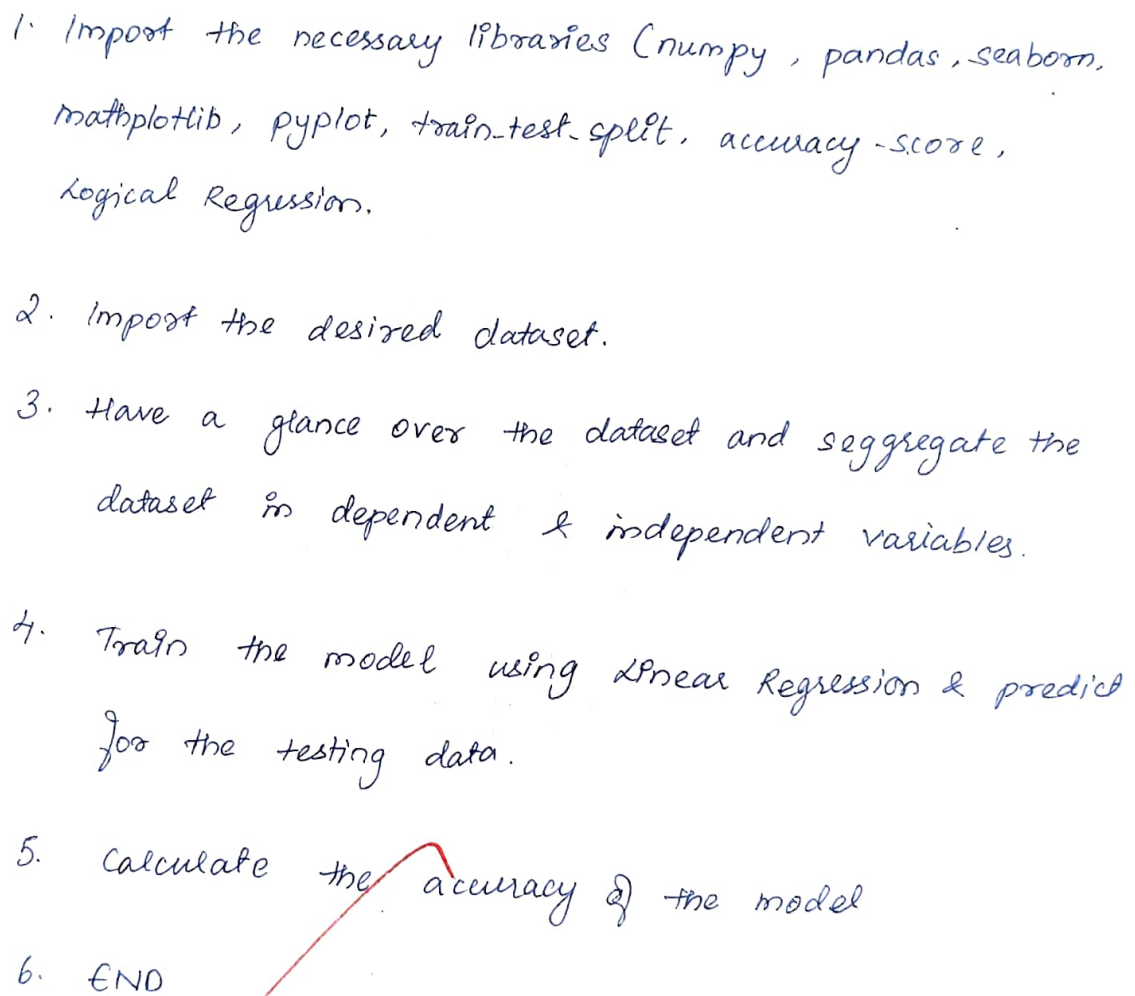 1. Import the necessary libraries (numpy, pandas, seaborn,
mathplotlib, pyplot, train-test-split, accuracy-score,
Logical Regression.
2. Import the desired dataset.
3. Have a glance over the dataset and seggregate the
dataset in dependent & independent variables.
4. Train the model using Linear Regression & predict
for the testing data.
5. Calculate the accuracy of the model
6. END